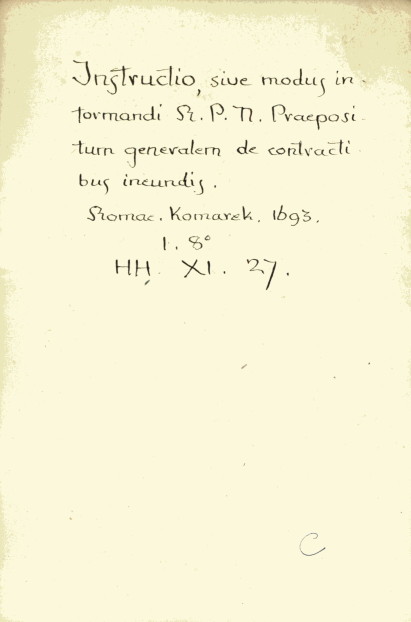 Instructio, sive modus in-
formandi R. P. N. Praeposi-
tum generalem de contracti-
bus ineundis.
Romae. Komarek. 1693.
1. 8°
HH. XI. 27.
C